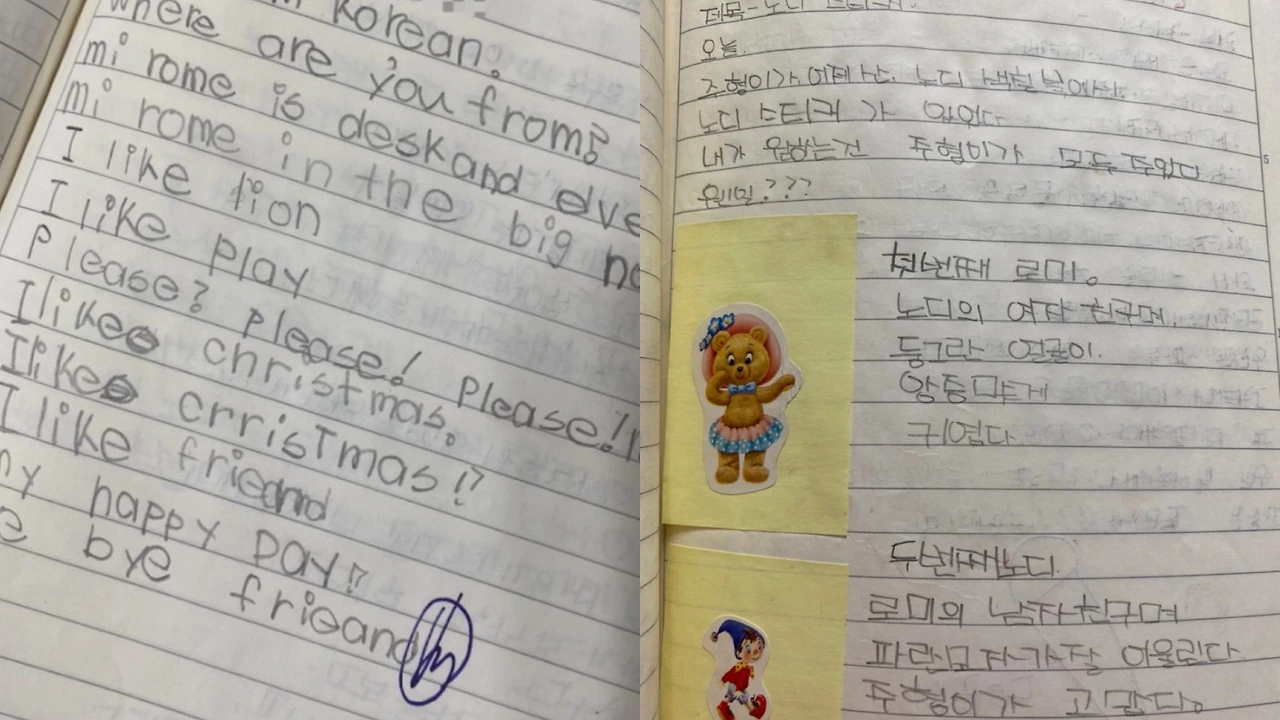 Korean.
where are you from?
mi rome is desk and eve
mi rome in the big
I like lion
I like play
Please? please! please!!
I like christmas.
I like crristmas!?
I like frieand
happy pay!!
bye frieand
제목-노디 스티커.
오늘.
주형이가 어제 산. 노디 색칠 북에서.
노디 스티커 가 있었다
내가 원하는건 주형이가 모두 주었다
왜일???
첫번째 로미.
노디의 여자 친구며.
둥그란 얼굴이.
앙증맞게
귀엽다.
두번째노디.
로미의 남자친구며
파란모자가잘 어울린다
주형이가 고맙다.